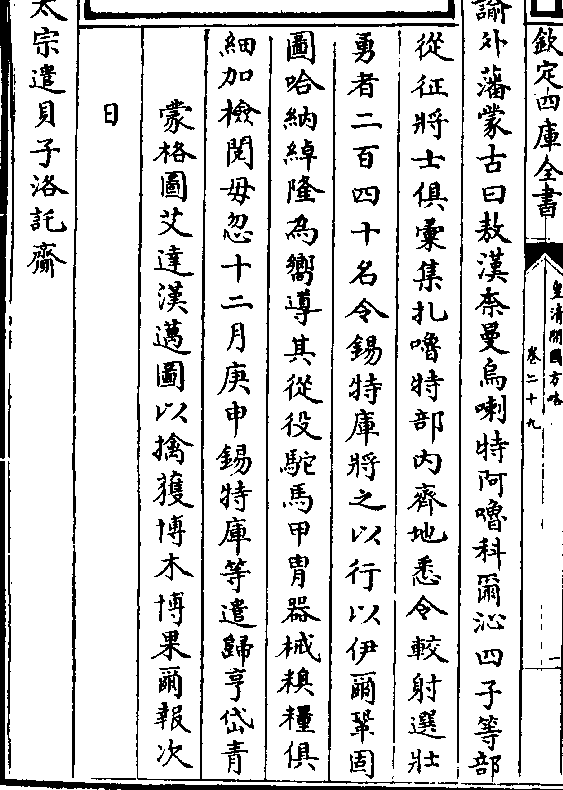 欽定四庫全書
皇清開國方略
卷二十九
諭外藩蒙古曰敖漢柰曼烏喇特阿嚕科爾沁四子等部
從征將士俱彙集扎嚕特部內齊地悉令較射選壯
勇者二百四十名令錫特庫將之以行以伊爾鞏固
圖哈納綽隆為嚮導其從役駝馬甲胄器械糗糧俱
細加檢閱毋忽十二月庚申錫特庫等遣歸亨岱青
蒙格圖艾達漢邁圖以擒獲博木博果爾報次
日
太宗遣貝子洛託齋